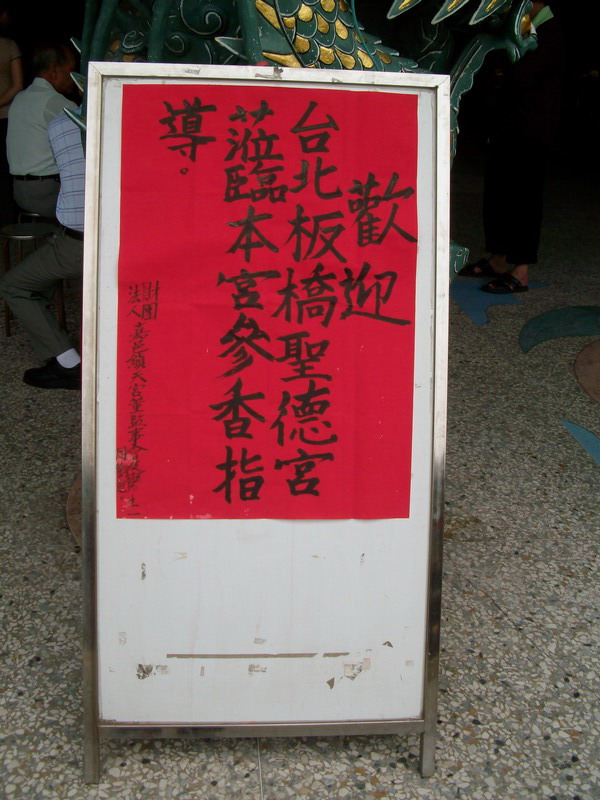 歡迎
台北板橋聖德宮
蒞臨本宮參香指
導。
財團
法人